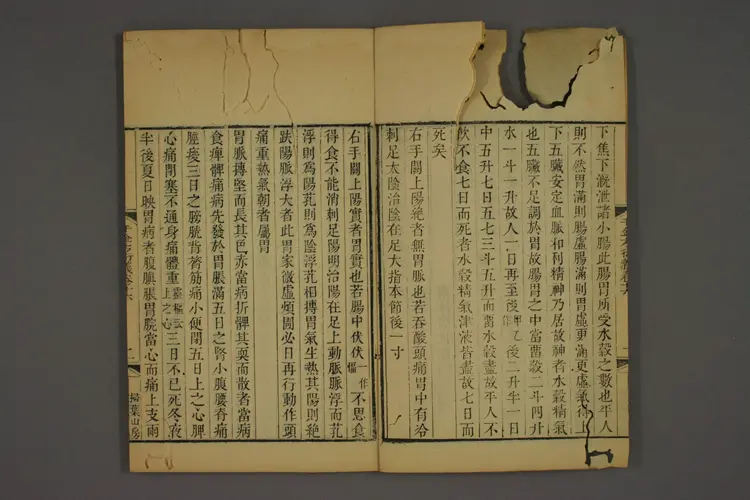 下焦下漑泄諸小腸此腸胃所受水穀之數也平人
則不然胃滿則腸虛腸滿則胃虛更滿更虛氣得上
下五臟安定血脈和利精神乃居故神者水穀精氣
也五臟不足調於胃故腸胃之中當留穀二斗四升
水一斗一升故人一日再至後甲乙作後二升半一日
中五升七日五七三斗五升而留水穀盡故平人不
飲不食七日而死者水穀精氣津液皆盡故七日而
死矣
右手關上陽絕者無胃脈也若吞酸頭痛胃中有冷
刺足太陰治陰在足大指本節後一寸
右手關上陽實者胃實也若腸中伏伏一作愊不思食
得食不能消刺足陽明治陽在足上動脈脈浮而芤
浮則爲陽芤則爲陰浮芤相搏胃氣生熱其陽則絕
趺陽脈浮大者此胃家微虛煩圊必日再行動作頭
痛重熱氣朝者屬胃
胃脈搏堅而長其色赤當病折髀其耎而散者當病
食痺髀痛病先發於胃脹滿五日之腎小腹腰脊痛
脛痠三日之膀胱背膂筋痛小便閉五日上之心脾
心痛閉塞不通身痛體重靈樞云上之心三日不已死冬夜
半後夏日昳胃病者腹䐜脹胃脘當心而痛上支兩
掃葉山房